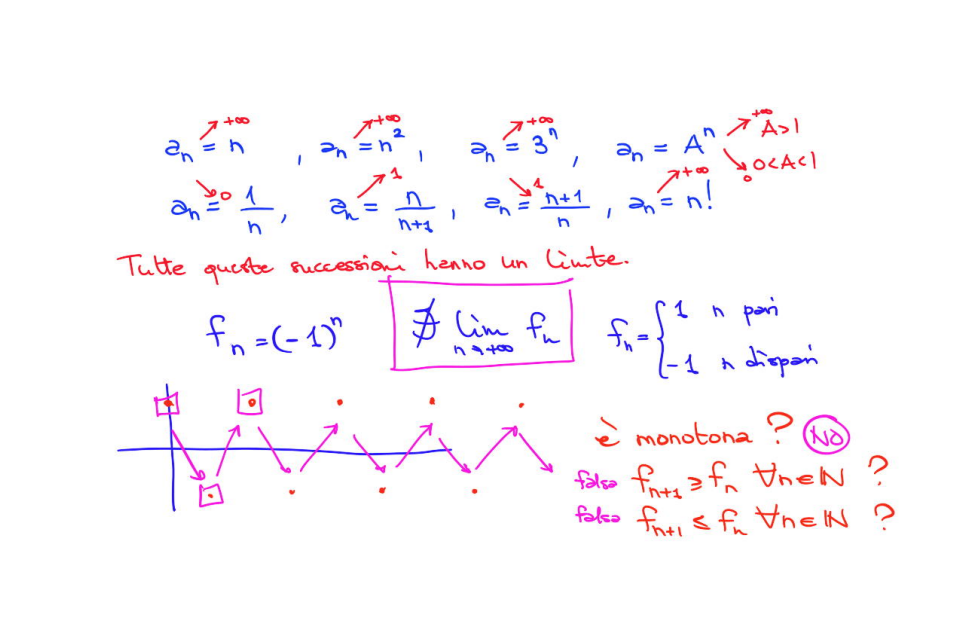 +∞ +∞ +∞ +∞
aₙ = n , aₙ = n² , aₙ = 3ⁿ , aₙ = Aⁿ A>1
0<A<1
0 1 1 +∞ 0
aₙ = 1/n , aₙ = n/(n+1) , aₙ = (n+1)/n , aₙ = n!
Tutte queste successioni hanno un limite.
fₙ = (-1)ⁿ ∄ lim n→+∞ fₙ fₙ = { 1 n pari
-1 n dispari
è monotona ? NO
falso fₙ₊₁ ≥ fₙ ∀n∈ℕ ?
falso fₙ₊₁ ≤ fₙ ∀n∈ℕ ?